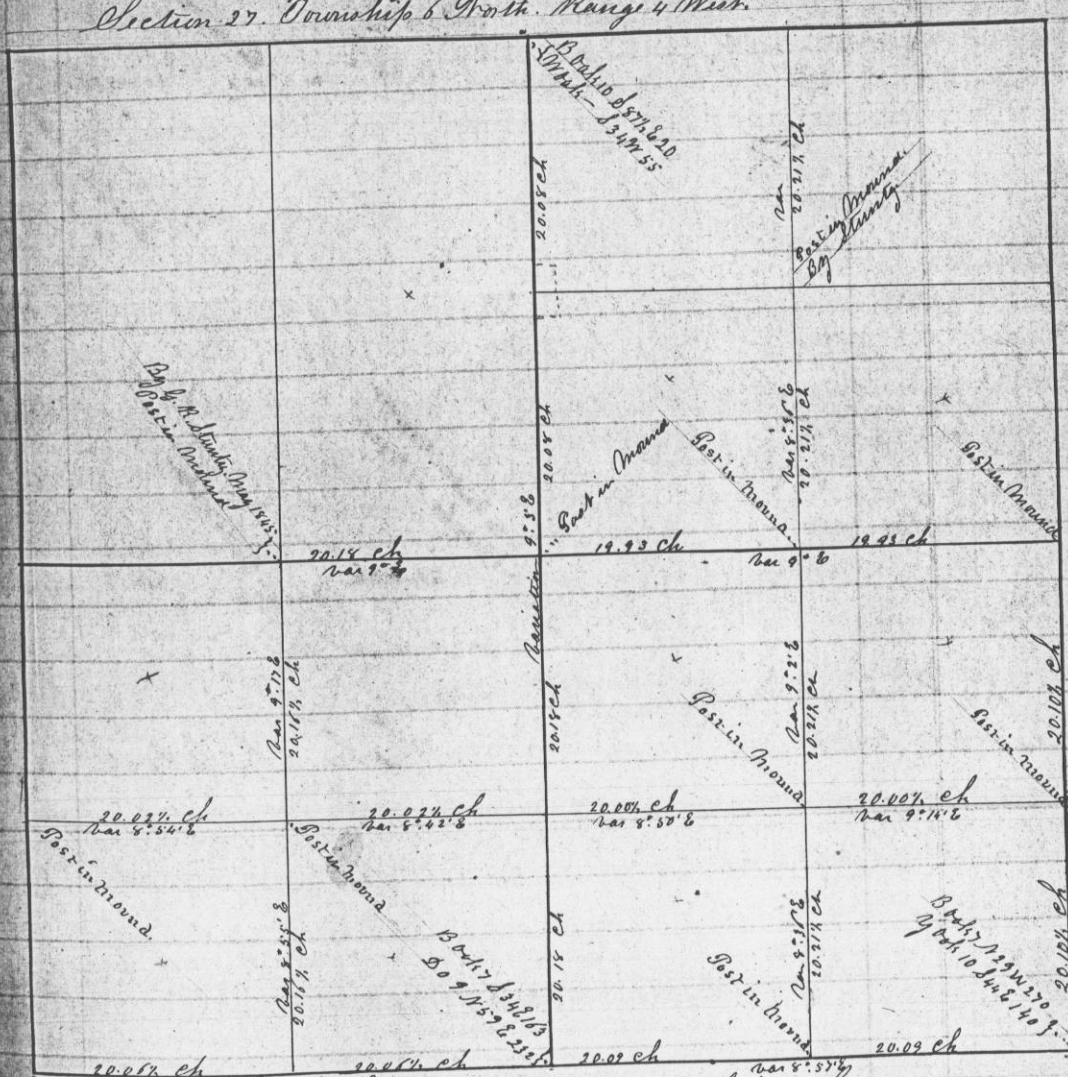 Section 27. Township 6 North. Range 4 West.
B Oak 10 S 87½ E 20
W Oak - S 34 W 55
20.08 Ch
Var
20.21½ Ch
Post in Mound.
By Stuntz
By G. R. Stuntz May 1845
Post in Mound
20.08 Ch
Post in Mound
Post in Mound
20.21½ Ch
Post in Mound
20.18 Ch
Var 9°
19.93 Ch
Var 9° E
19.93 Ch
Variation
9° 5' E
Var 9° 17' E
20.16½ Ch
20.18 Ch
Post in Mound
Var 9° 2' E
20.21½ Ch
Post in Mound
20.10½ Ch
20.02½ Ch
Var 8° 54' E
20.02½ Ch
Var 8° 42' E
20.00½ Ch
Var 8° 50' E
20.00½ Ch
Var 9° 14' E
Post in Mound.
Post in Mound
Var 8° 55' E
20.16½ Ch
B Oak 7 S 34 E 163
Do 9 N 59 E 232
20.18 Ch
Post in Mound.
20.21½ Ch
B Oak 7 N 29 W 270
Y Oak 10 S 44 E 140
20.10½ Ch
20.06½ Ch
20.06½ Ch
20.09 Ch
Var 8° 57' E
20.09 Ch